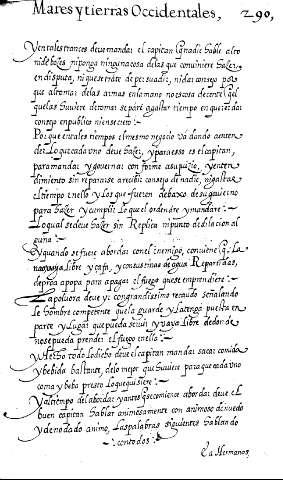 Mares y tierras Occidentales, 290,
Yentalestrances deve mandar el capitan q̃ nadie hable alto
ni de boçes ni ponga ninguna cosa de las que conviniere hazer
en disputa, ni que se trate de persuadir, ni dar consejo por
que al tomar de las armas en la mano no es cosa decente q̃ del
que las huviere de tomar se pare a gastar tiempo en que rer dar
consejo en publico ni en secreto
Por que en tales tiempos el mesmo negocio va dando a enten-
der. Lo que cada vno deve hazer, y para esso es el capitan,
para mandar y governar con forme a su juizio, y enten-
dimiento sin repararse a recibir consejo de nadie, ni gastar
el tiempo en ello y los que fueren debaxo de su govierno
para hazer y cumplir lo que el ordenare y mandare
Lo qual se deve hazer sin Replica ni punto de dilacion al
guna
Y quando se fuere abordar con el enemigo, conviene q̃ La
Libre y çafa, y con sus tinas de agua Repartidas,
de proa a popa para apagar el fuego que se emprendiere
La polvora deve yr con grandissimo recaudo señalando
le hombre competente que la guarde y La tenga puesta en
parte y Lugar que pueda servir y vaya Libre de donde
no se pueda prender el fuego en ella
Y Hecho todo Lo dicho deve el capitan mandar sacar comida
y bebida bastante, de lo mejor que huviere para que cada vno
coma y beba presto Lo que quisiere
Y al tiempo del abordar y antes que se comience abordar deve el
buen capitan hablar animosamente con animoso denuedo
y denodado animo, Las palabras siguientes hablando
con todos
Ea Hermanos